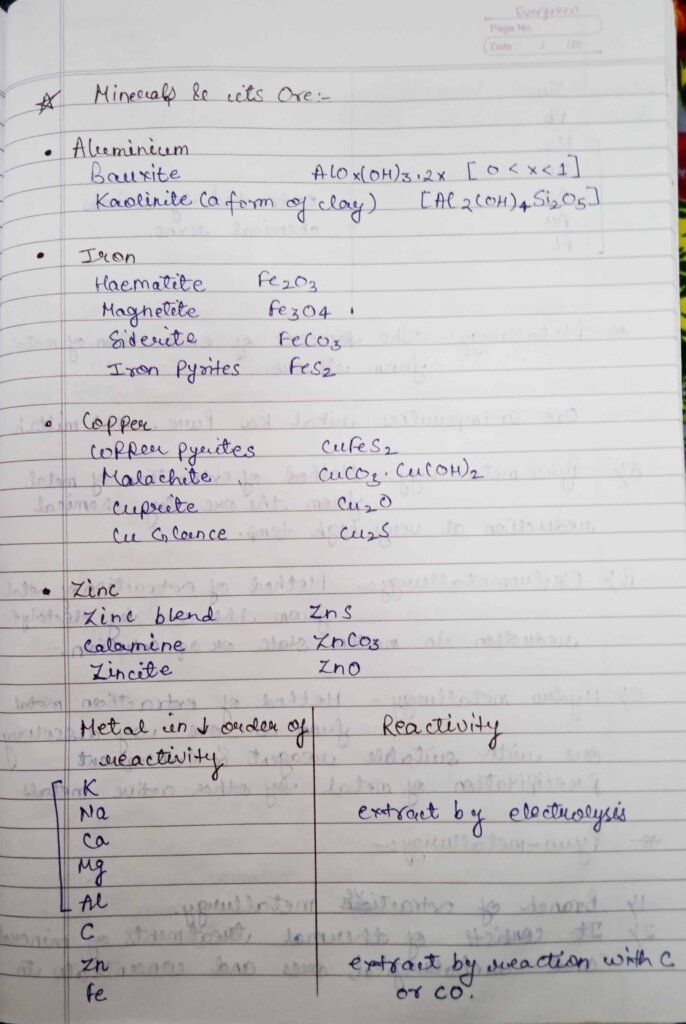 Evergreen
Page No.
Date : / /20
☆ Minerals & its Ore:-
• Aluminium
Bauxite AlOx(OH)3·2x [0 < x < 1]
Kaolinite (a form of clay) [Al2(OH)4Si2O5]
• Iron
Haematite Fe2O3
Magnetite Fe3O4
Siderite FeCO3
Iron Pyrites FeS2
• Copper
Copper pyrites CuFeS2
Malachite CuCO3·Cu(OH)2
Cuprite Cu2O
Cu Glance Cu2S
• Zinc
Zinc blend ZnS
Calamine ZnCO3
Zincite ZnO
Metal in ↓ order of Reactivity
reactivity
K
Na extract by electrolysis
Ca
Mg
Al
C
Zn extract by reaction with C
Fe or CO.